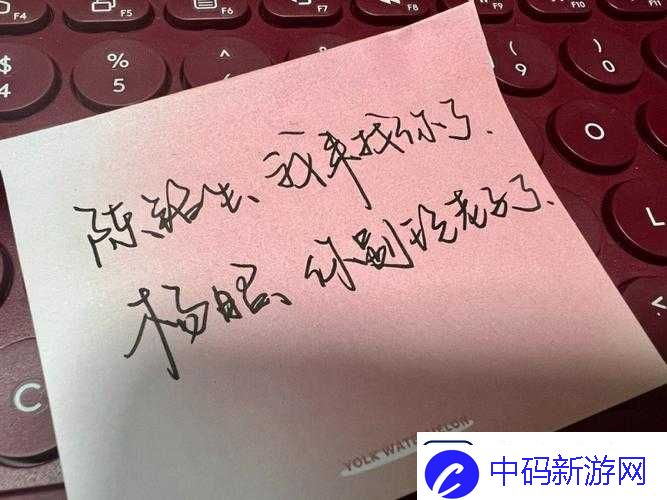 F4
F5
F6
F7
F8
$
4
%
5
(
9
)
0
O
L
C
陈路生、我来找你了.
杨昭、你别抢老子了.
YOLK WATERMELON
中码新游网